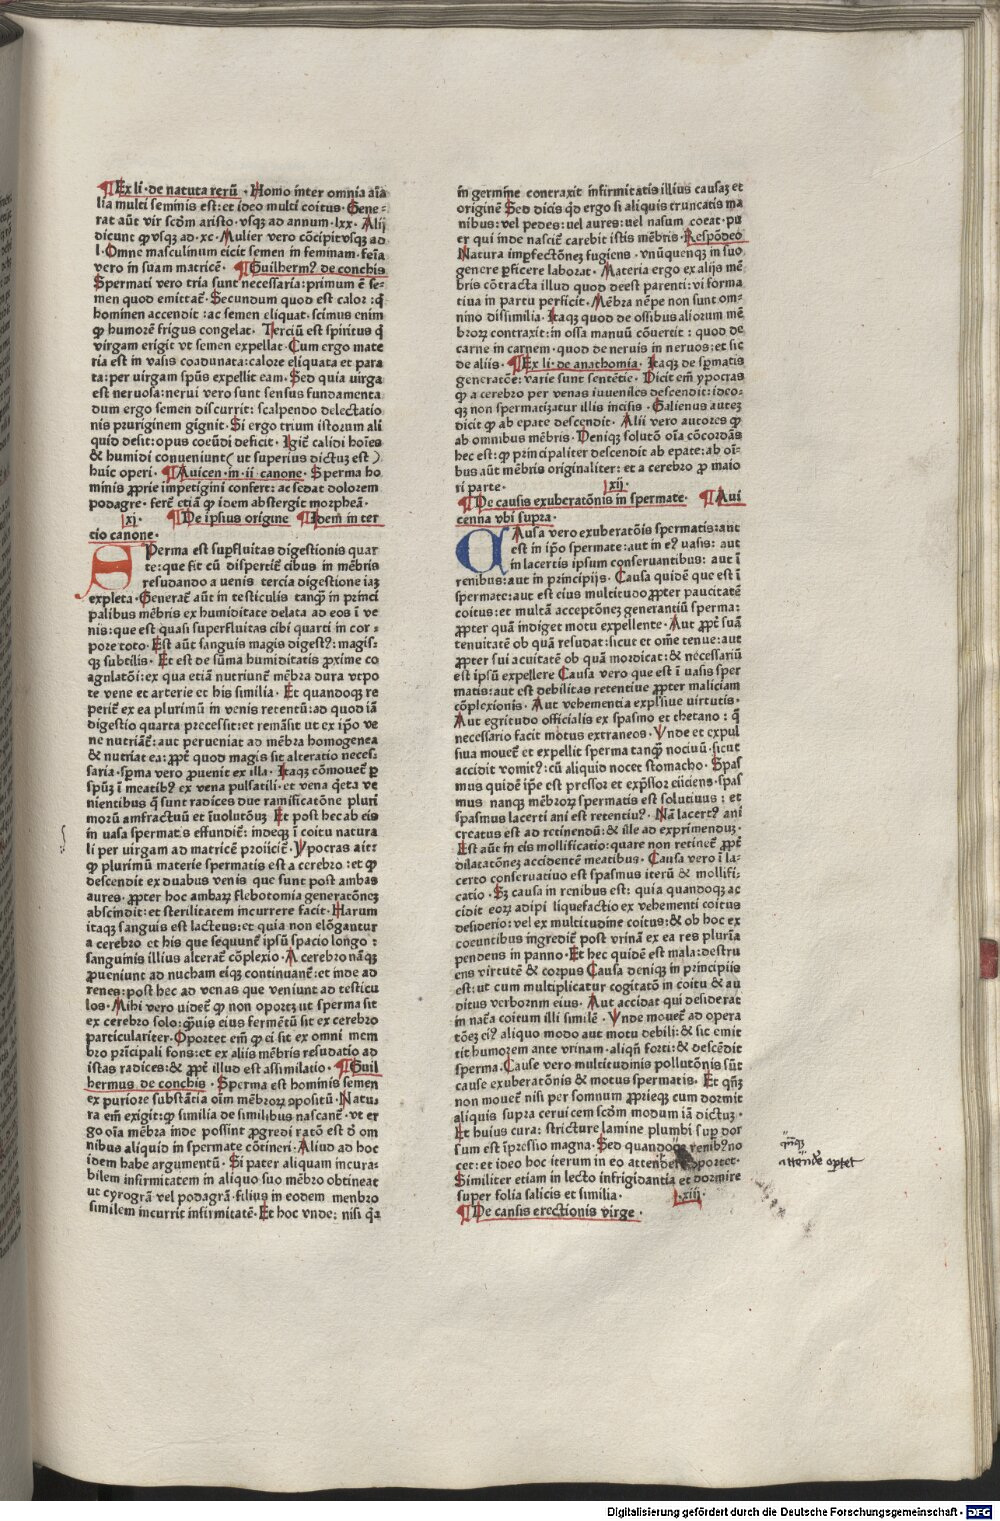 ¶Ex li· de natura rerū · Homo inter omnia aīa
lia multi seminis est: et ideo multi coitus· Gene-
rat aūt vir scḋm aristo· vsqꝫ ad annum·lxx· Alij
dicunt ꝙ vsqꝫ ad·xc· Mulier vero cōcipit vsqꝫ ad
l· Omne masculinum eicit semen in feminam· feīa
vero in suam matricē· ¶Guilhermꝰ de conchis
Spermati vero tria sunt necessaria: primum ē se-
men quod emittat̄· Secundum quod est calor: q̄
hominem accendit: ac semen eliquat· scimus enim
ꝙ humorē frigus congelat· Terciū est spiritus q̄
virgam erigit vt semen expellat· Cum ergo mate
ria est in vasis coadunata: calore eliquata et para
ta: per virgam spūs expellit eam· Sed quia virga
est neruosa: nerui vero sunt sensus fundamenta
dum ergo semen discurrit: scalpendo delectatio
nis pruriginem gignit· Si ergo trium istorum ali
quid desit: opus coeūdi deficit· Igit̄ calidi hoīes
& humidi conueniunt( ut superius dictuꝫ est )
huic operi· ¶Auicen·in·ii canone· Sperma ho
minis ꝓprie impetigini confert: ac sedat dolorem
podagre· fert̄ etiā ꝙ idem abstergit morpheā·
xj· ¶De ipsius origine ¶Idem in ter
cio canone·
SPerma est suꝑfluitas digestionis quar
te: que fit cū dispertit̄ cibus in mēbris
resudando a uenis tercia digestione iaꝫ
expleta· Generat̄ aūt in testiculis tanqꝫ in princi
palibus mēbris ex humiditate delata ad eos ī ve
nis: que est quasi superfluitas cibi quarti in cor-
pore toto· Est aūt sanguis magis digestꝰ: magis-
qꝫ subtilis· Et est de sūma humiditatis ꝓxime co
agulatōi: ex qua etiā nutriunt̄ mēbra dura vtpo
te vene et arterie et his similia· Et quandoqꝫ re
perit̄ ex ea plurimū in venis retentū: ad quod iā
digestio quarta precessit: et remāsit ut ex ip̄o ve
ne nutriāt̄: aut perueniat ad mēbra homogenea
& nutriat ea: ꝓpt̄ quod magis sit alteratio neces-
saria· sꝑma vero ꝓuenit ex illa· Itaqꝫ cōmouet̄ ꝑ
spūꝫ ī meatibꝰ ex vena pulsatili· et vena q̄eta ve
nientibus q̄ sunt radices due ramificatōne pluri
morū amfractuū et īuolutōuꝫ Et post hec ab eis
in uasa spermatis effundit̄: indeqꝫ ī coitu natura
li per virgam ad matricē proiicit̄· Ypocras ait:
ꝙ plurimū materie spermatis est a cerebro: et ꝙ
descendit ex duabus venis que sunt post ambas
aures· ꝓpter hoc ambaꝝ flebotomia generatōneꝫ
abscindit: et sterilitatem incurrere facit· Harum
itaqꝫ sanguis est lacteus: et quia non elōgantur
a cerebro et his que sequunt̄ ipsū spacio longo:
sanguinis illius alterat̄ cōplexio· A cerebro nāqꝫ
ꝓueniunt ad nucham eiqꝫ continuant̄: et inde ad
renes: post hec ad venas que veniunt ad testicu
los· Mihi vero uidet̄ ꝙ non oportꝫ ut sperma sit
ex cerebro solo: ꝙuis eius fermētū sit ex cerebro
particulariter· Oportet em̄ ꝙ ei sit ex omni mem
bro prīcipali fons: et ex aliis mēbris resudatio ad
istas radices: & ꝓpt̄ illud est assimilatio· ¶Guil
hermus de conchis · Sperma est hominis semen
ex puriore substātia oīm mēbroꝝ ꝯpositū· Natu-
ra em̄ exigit: ꝙ similia de similibus nascant̄· vt er
go oīa mēbra inde possint ꝓgredi ratō est ꝺ om
nibus aliquid in spermate cōtineri: Aliud ad hoc
idem habe argumentū· Si pater aliquam incura-
bilem infirmitatem in aliquo suo mēbro obtineat
ut cyrogrā vel podagrā· filius in eodem menbro
similem incurrit infirmitatē· Et hoc vnde: nisi q̄a
in germine contraxit infirmitatis illius causaꝫ et
originē Sed dicis qḋ ergo si aliquis truncatis ma
nibus: vel pedes: uel aures: uel nasum coeat· pu
er qui inde nascit̄ carebit istis mēbris· Respōdeo
Natura imꝑfectōneꝫ fugiens · vnūquenqꝫ in suo
genere ꝑficere laborat· Materia ergo ex alijs mē
bris cōtracta illud quod deest parenti: vi forma
tiua in partu perficit· Mēbra nēpe non sunt om-
nino dissimilia· Itaqꝫ quod de ossibus aliorum mē
broꝝ contraxit: in ossa manuū cōuertit: quod de
carne in carnem· quod de neruis in neruos: et sic
de aliis· ¶Ex li·de anathomia· Itaqꝫ de sꝑmatis
generatōe: varie sunt sentētie· Dicit em̄ ypocras
ꝙ a cerebro per venas iuueniles descendit: ideo-
qꝫ non spermatizatur illis incisis· Galienus auteꝫ
dicit ꝙ ab epate descendit· Alii vero autores ꝙ
ab omnibus mēbris· Deniqꝫ solutō oīa cōcordās
hec est: ꝙ principaliter descendit ab epate: ab oī-
bus aūt mēbris originaliter: et a cerebro ꝓ maio
ri parte· xij·
¶De causis exuberatōnis in spermate· ¶Aui
cenna vbi supra·
CAusa vero exuberatōis spermatis: aut
est in ip̄o spermate: aut in eꝰ uasis: aut
in lacertis ipsum conseruantibus: aut ī
renibus: aut in principijs· Causa quidē que est ī
spermate: aut est eius multitudo ꝓpter paucitatē
coitus: et multā acceptōneꝫ generantiū sperma:
ꝓpter quā indiget motu expellente· Aut ꝓpt̄ suā
tenuitatē ob quā resudat: sicut et om̄e tenue: aut
ꝓpter sui acuitatē ob quā mordicat: & necessariū
est ipsū expellere Causa vero que est ī uasis sper
matis: aut est debilitas retentiue ꝓpter maliciam
cōplexionis· Aut vehementia expl̄siue virtutis·
Aut egritudo officialis ex spasmo et thetano: q̄
necessario facit motus extraneos· Vnde et expul
siua mouet̄ et expellit sperma tanqꝫ nociuū· sicut
accidit vomitꝰ: cū aliquid nocet stomacho· Spas
mus quidē ip̄e est pressor et exp̄ssor eiiciens· spas
mus nanqꝫ mēbroꝝ spermatis est solutiuus: et
spasmus lacerti ani est retentiuꝰ· Nā lacertꝰ ani
creatus est ad retinendū: & ille ad exprimenduꝫ·
Est aūt in eis mollificatio: quare non retinet̄ ꝓpt̄
dilatatōneꝫ accidentē meatibus· Causa vero ī la-
certo conseruatiuo est spasmus iterū & mollifi-
catio· Sꝫ causa in renibus est: quia quandoqꝫ ac
cidit eoꝝ adipi liquefactio ex vehementi coitus
desiderio: vel ex multitudine coitus: & ob hoc ex
coeuntibus ingredit̄ post vrinā ex ea res plurīa
pendens in panno· Et hec quidē est mala: destru
ens virtutē & corpus Causa deniqꝫ in principiis
est: ut cum multiplicatur cogitatō in coitu & au
ditus verborum eius· Aut accidat qui desiderat
in nat̄a coitum illi similē· Vnde mouet̄ ad opera
tōeꝫ eiꝰ aliquo modo aut motu debili: & sic emit
tit humorem ante vrinam· aliqn̄ forti: & descēdit
sperma· Cause vero multitudinis pollutōnis sūt
cause exuberatōnis & motus spermatis· Et qn̄ꝫ
non mouet̄ nisi per somnum ꝓprieqꝫ cum dormit
aliquis supra ceruicem scḋm modum iā dictuꝫ·
Et huius cura: stricture lamine plumbi suꝑ dor
sum est īpressio magna· Sed quandoqꝫ renibꝰ no
cet: et ideo hoc iterum in eo attendere oportet·
Similiter etiam in lecto infrigidantia et dormire
super folia salicis et similia· xiij·
¶De causis erectionis virge·
attendere oportet
Digitalisierung gefördert durch die Deutsche Forschungsgemeinschaft · DFG